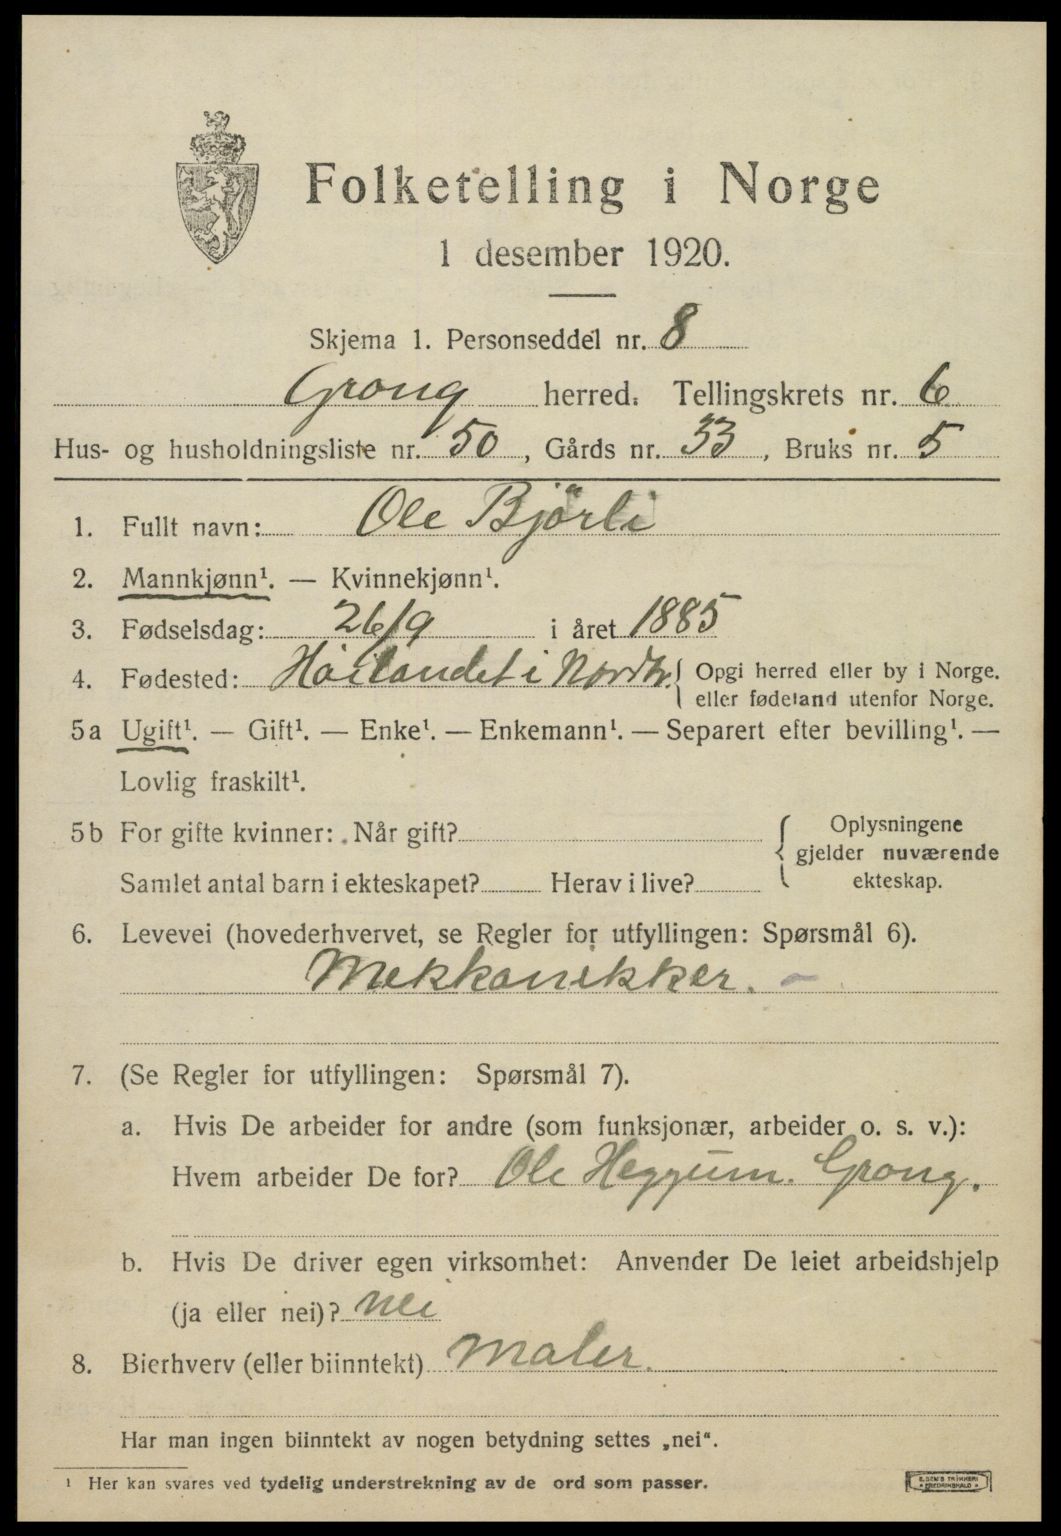 Folketelling i Norge
1 desember 1920.
Skjema 1. Personseddel nr. 8
Grong herred. Tellingskrets nr. 6
Hus- og husholdningsliste nr. 50, Gårds nr. 33, Bruks nr. 5
1. Fullt navn: Ole Bjørli
2. Mannkjønn¹. — Kvinnekjønn¹.
3. Fødselsdag: 26/9 i året 1885
4. Fødested: Høilandet i Nordtr. { Opgi herred eller by i Norge.
eller fødeland utenfor Norge.
5a Ugift¹. — Gift¹. — Enke¹. — Enkemann¹. — Separert efter bevilling¹. —
Lovlig fraskilt¹.
5b For gifte kvinner: Når gift?
Samlet antal barn i ekteskapet? Herav i live?
{ Oplysningene
gjelder nuværende
ekteskap.
6. Levevei (hovederhvervet, se Regler for utfyllingen: Spørsmål 6).
Mekkanikker. -
7. (Se Regler for utfyllingen: Spørsmål 7).
a. Hvis De arbeider for andre (som funksjonær, arbeider o. s. v.):
Hvem arbeider De for? Ole Heggum. Grong.
b. Hvis De driver egen virksomhet: Anvender De leiet arbeidshjelp
(ja eller nei)? nei
8. Bierhverv (eller biinntekt) Maler.
Har man ingen biinntekt av nogen betydning settes „nei“.
¹ Her kan svares ved tydelig understrekning av de ord som passer.
E. SEM'S TRYKKERI
FREDRIKSHALD